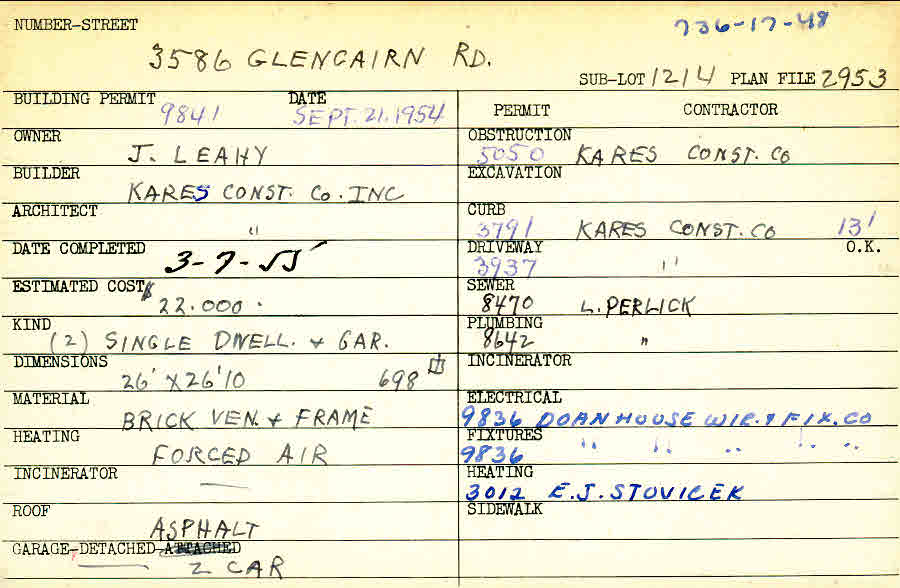 NUMBER-STREET 736-17-48
3586 GLENCAIRN RD.
SUB-LOT 1214 PLAN FILE 2953
BUILDING PERMIT DATE
9841 SEPT. 21, 1954
OWNER
J. LEAHY
BUILDER
KARES CONST. CO. INC
ARCHITECT
"
DATE COMPLETED
3-7-55
ESTIMATED COST $
22.000.
KIND
(2) SINGLE DWELL. & GAR.
DIMENSIONS
26' X 26'10 698
MATERIAL
BRICK VEN. & FRAME
HEATING
FORCED AIR
INCINERATOR
—
ROOF
ASPHALT
GARAGE-DETACHED-ATTACHED
2 CAR
PERMIT CONTRACTOR
OBSTRUCTION
5050 KARES CONST. CO
EXCAVATION
CURB
3791 KARES CONST. CO 13'
DRIVEWAY O.K.
3937 "
SEWER
8470 L. PERLICK
PLUMBING
8642 "
INCINERATOR
ELECTRICAL
9836 DOAN HOUSE WIR. & FIX. CO
FIXTURES
9836 " " " " "
HEATING
3012 E.J. STOVICEK
SIDEWALK